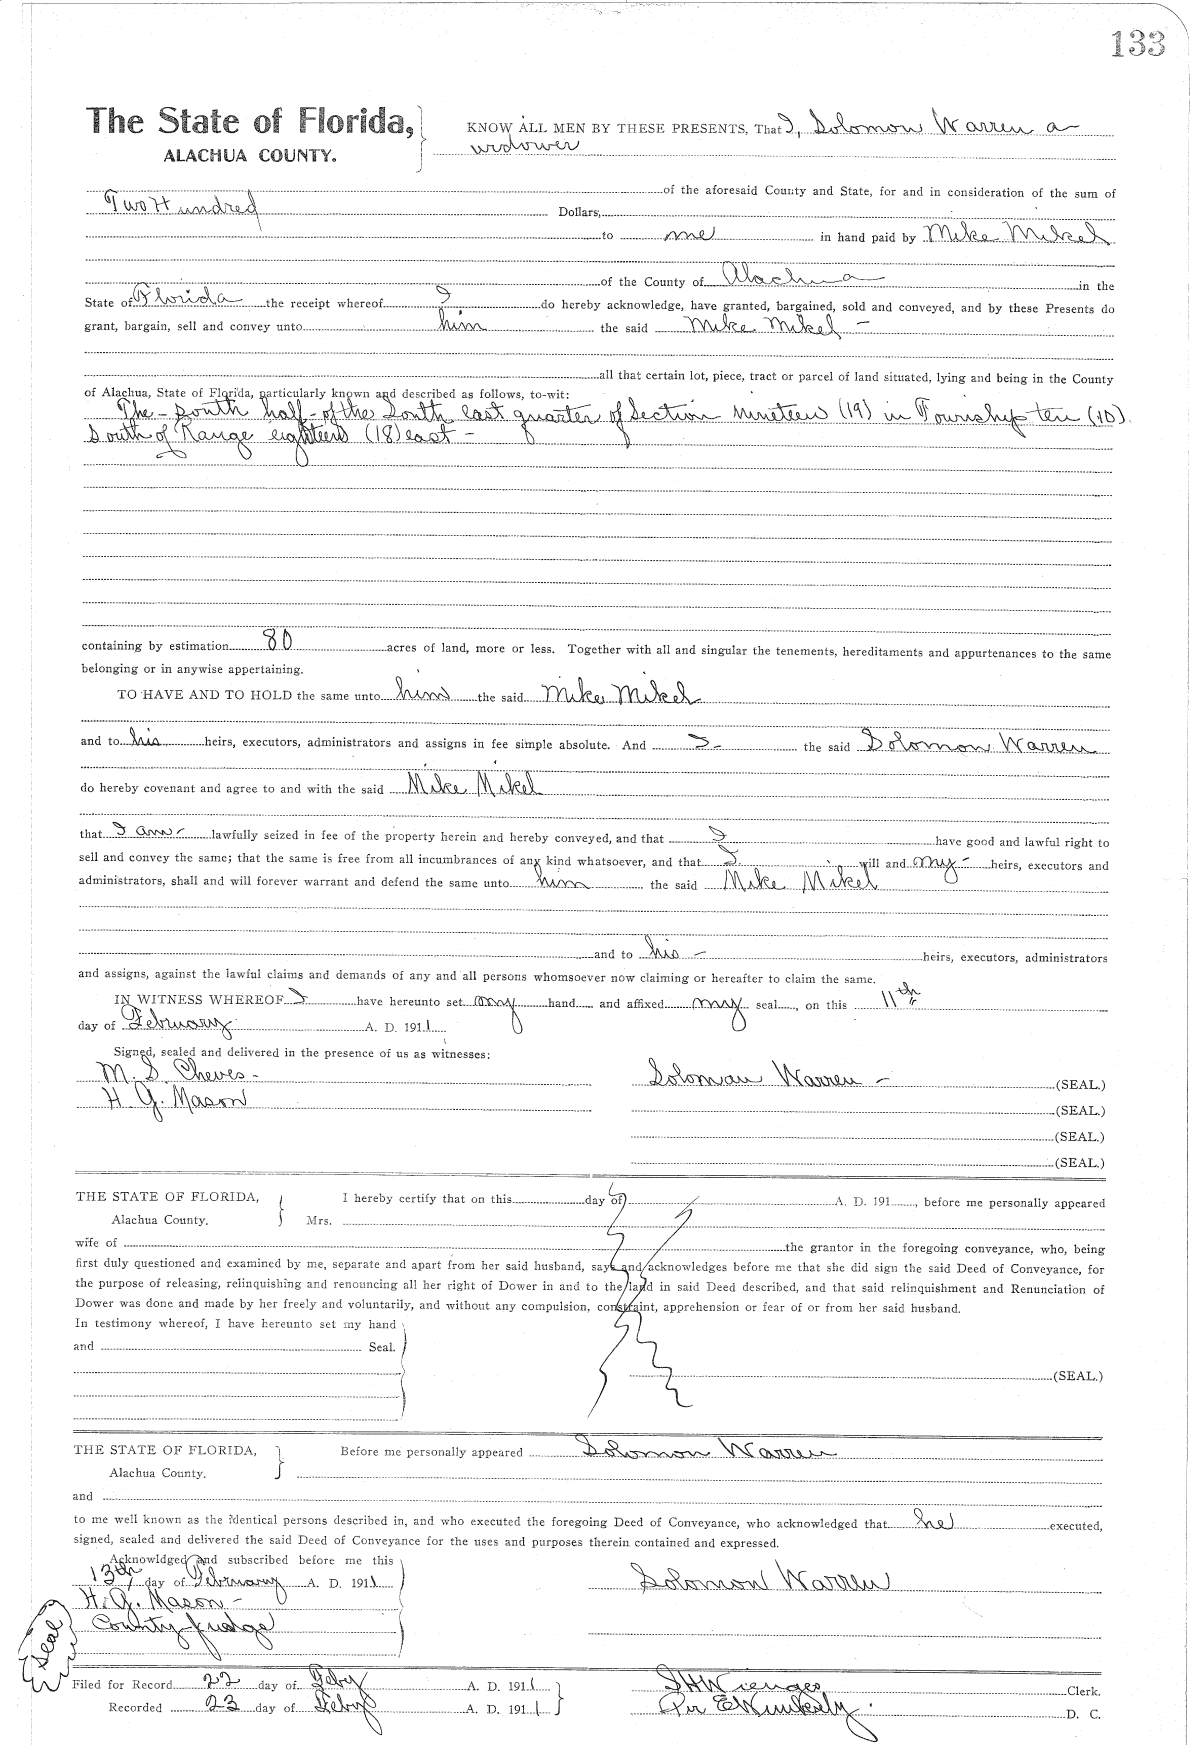 133
The State of Florida,
ALACHUA COUNTY.
KNOW ALL MEN BY THESE PRESENTS, That I, Solomon Warren a
widower
of the aforesaid County and State, for and in consideration of the sum of
Two Hundred Dollars,
to me in hand paid by Mike Mikel
of the County of Alachua in the
State of Florida the receipt whereof I do hereby acknowledge, have granted, bargained, sold and conveyed, and by these Presents do
grant, bargain, sell and convey unto him the said Mike Mikel -
all that certain lot, piece, tract or parcel of land situated, lying and being in the County
of Alachua, State of Florida, particularly known and described as follows, to-wit:
The - South half - of the South east quarter of Section nineteen (19) in Township ten (10)
South of Range eighteen (18) east -
containing by estimation 80 acres of land, more or less. Together with all and singular the tenements, hereditaments and appurtenances to the same
belonging or in anywise appertaining.
TO HAVE AND TO HOLD the same unto him the said Mike Mikel
and to his heirs, executors, administrators and assigns in fee simple absolute. And I - the said Solomon Warren
do hereby covenant and agree to and with the said Mike Mikel
that I am - lawfully seized in fee of the property herein and hereby conveyed, and that I have good and lawful right to
sell and convey the same; that the same is free from all incumbrances of any kind whatsoever, and that I will and my - heirs, executors and
administrators, shall and will forever warrant and defend the same unto him the said Mike Mikel
and to his - heirs, executors, administrators
and assigns, against the lawful claims and demands of any and all persons whomsoever now claiming or hereafter to claim the same.
IN WITNESS WHEREOF I have hereunto set my hand and affixed my seal, on this 11th
day of February A. D. 1911.
Signed, sealed and delivered in the presence of us as witnesses:
M. S. Cheves - Soloman Warren - (SEAL.)
H. G. Mason (SEAL.)
(SEAL.)
(SEAL.)
THE STATE OF FLORIDA, I hereby certify that on this day of A. D. 191, before me personally appeared
Alachua County. Mrs.
wife of the grantor in the foregoing conveyance, who, being
first duly questioned and examined by me, separate and apart from her said husband, says and acknowledges before me that she did sign the said Deed of Conveyance, for
the purpose of releasing, relinquishing and renouncing all her right of Dower in and to the land in said Deed described, and that said relinquishment and Renunciation of
Dower was done and made by her freely and voluntarily, and without any compulsion, constraint, apprehension or fear of or from her said husband.
In testimony whereof, I have hereunto set my hand
and Seal.
(SEAL.)
THE STATE OF FLORIDA, Before me personally appeared Solomon Warren
Alachua County.
and
to me well known as the identical persons described in, and who executed the foregoing Deed of Conveyance, who acknowledged that he executed,
signed, sealed and delivered the said Deed of Conveyance for the uses and purposes therein contained and expressed.
Acknowldged and subscribed before me this
13th day of February A. D. 1911 Solomon Warren
H. G. Mason -
County Judge
Seal
Filed for Record 22 day of Feby A. D. 1911 S H Wienges Clerk.
Recorded 23 day of Feby A. D. 1911 Per E Wimberly. D. C.